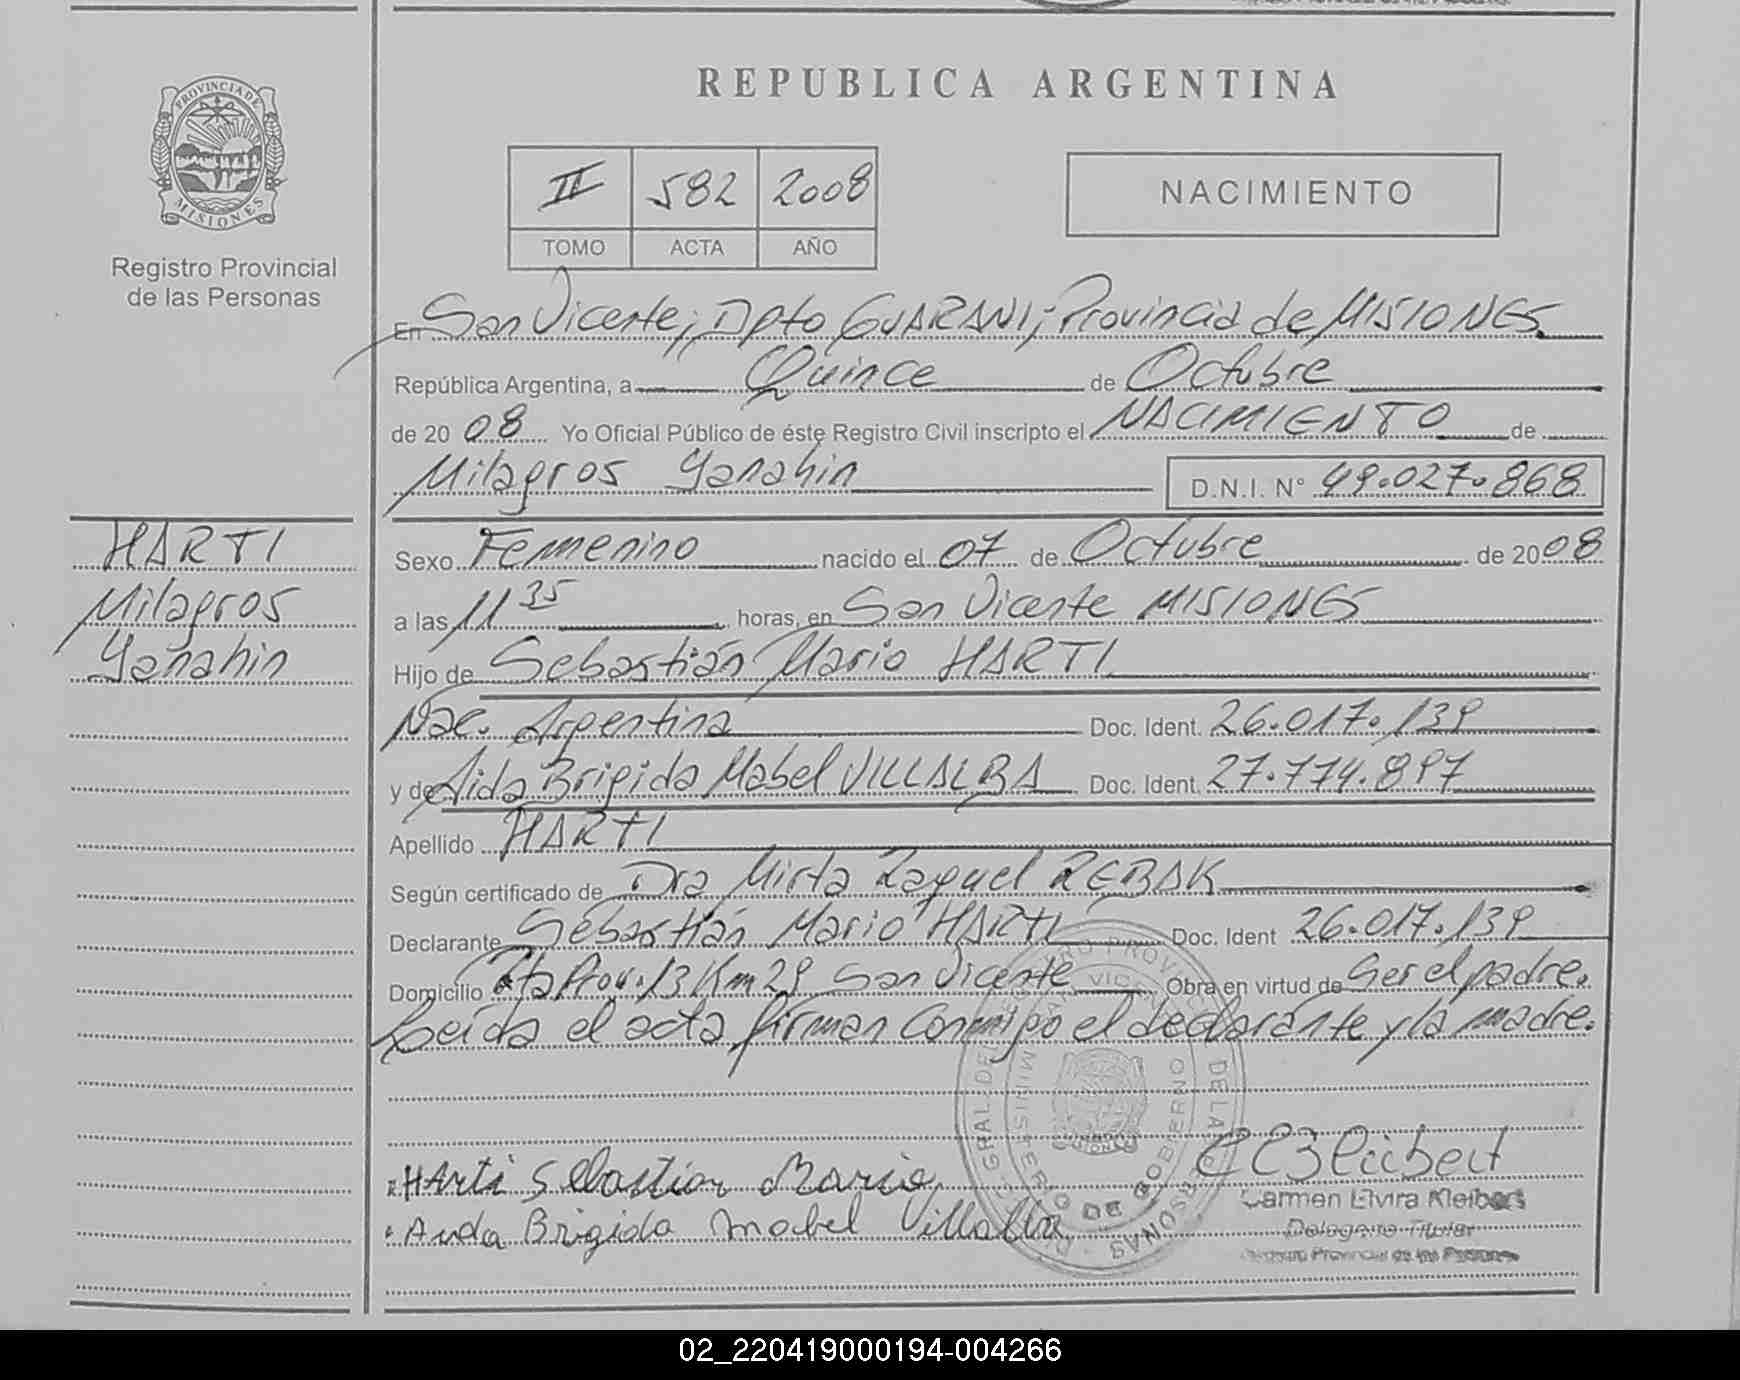 REPUBLICA ARGENTINA
PROVINCIA DE
MISIONES
Registro Provincial
de las Personas
II 582 2008
TOMO ACTA AÑO
NACIMIENTO
En San Vicente; Dpto GUARANI; Provincia de MISIONES
República Argentina, a Quince de Octubre
de 20 08 Yo Oficial Público de éste Registro Civil inscripto el NACIMIENTO de
Milagros Yanahin D.N.I. N° 49.027.868
HARTI
Milagros
Yanahin
Sexo Femenino nacido el 07 de Octubre de 2008
a las 11 35 horas, en San Vicente MISIONES
Hijo de Sebastián Mario HARTI
Nac. Argentina Doc. Ident. 26.017.139
y de Aida Brigida Mabel VILLALBA Doc. Ident. 27.774.897
Apellido HARTI
Según certificado de Dra Mirta Raquel REBAK
Declarante Sebastián Mario HARTI Doc. Ident 26.017.139
Domicilio Rta Prov. 13 Km 29 San Vicente Obra en virtud de Ser el padre.
Leída el acta, firman conmigo el declarante y la madre.
HArti Sebastian Mario
Aida Brigida Mabel Villalba
MINISTERIO DE GOBIERNO
Carmen Elvira Kleibert
Delegado Titular
Registro Provincial de las Personas
02_220419000194-004266